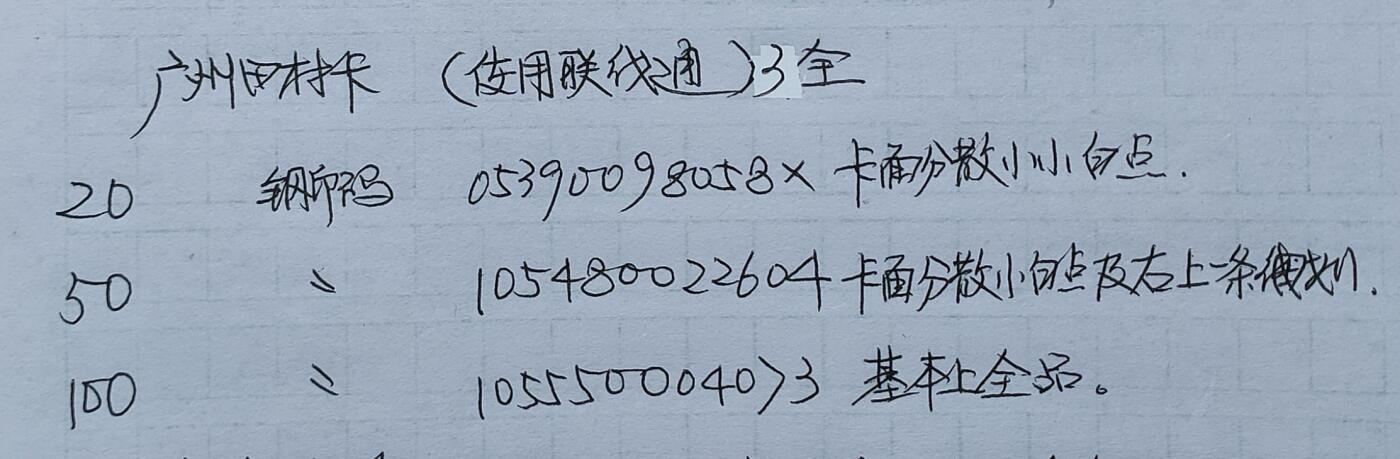 广州田村卡 (使用联线通)3全
20 钢印码 05390098058× 卡面分散小小白点.
50 〃 105480022604 卡面分散小白点及右上一条划.
100 〃 105550004073 基本上全品。